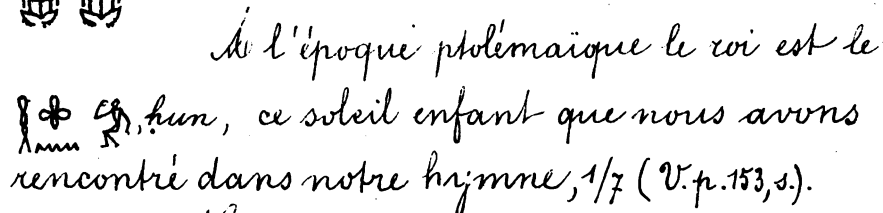 À l'époque ptolémaïque le roi est le
, ḥun, ce soleil enfant que nous avons
rencontré dans notre hymne, 1/7 (V.p.153,s.).